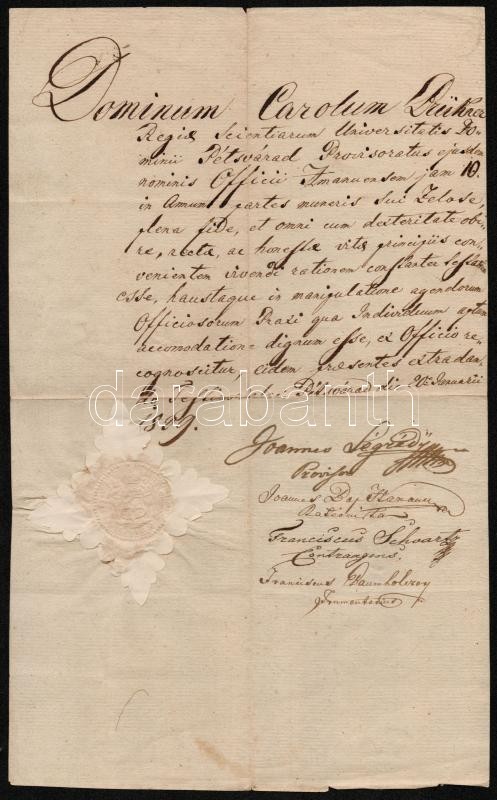 Dominum Carolum
Regiæ Scientiarum Universitatis Do-
minii Pétsvárad Provisoratus ejusdem
nominis Officii Amanuensem jam 10.
in Annum partes muneris sui Zelose,
plena fide, et omni cum dexteritate obi-
re, rectæ, ac honestæ vitæ principiis con-
venientem vivendi rationem constanter
esse, haustaque in manipulatione agendorum
Officiosorum Praxi qua Individuum aptum
accomodatione dignum esse, ex Officio re-
cognoscitur, eidem præsentes extradan-
Pétsvárad die 20a Januarii
darabanth
Joannes Ségrády
Provisor
Joannes
Rationista
Franciscus Schvartz
Contraagens.
Franciscus
Frumentarius